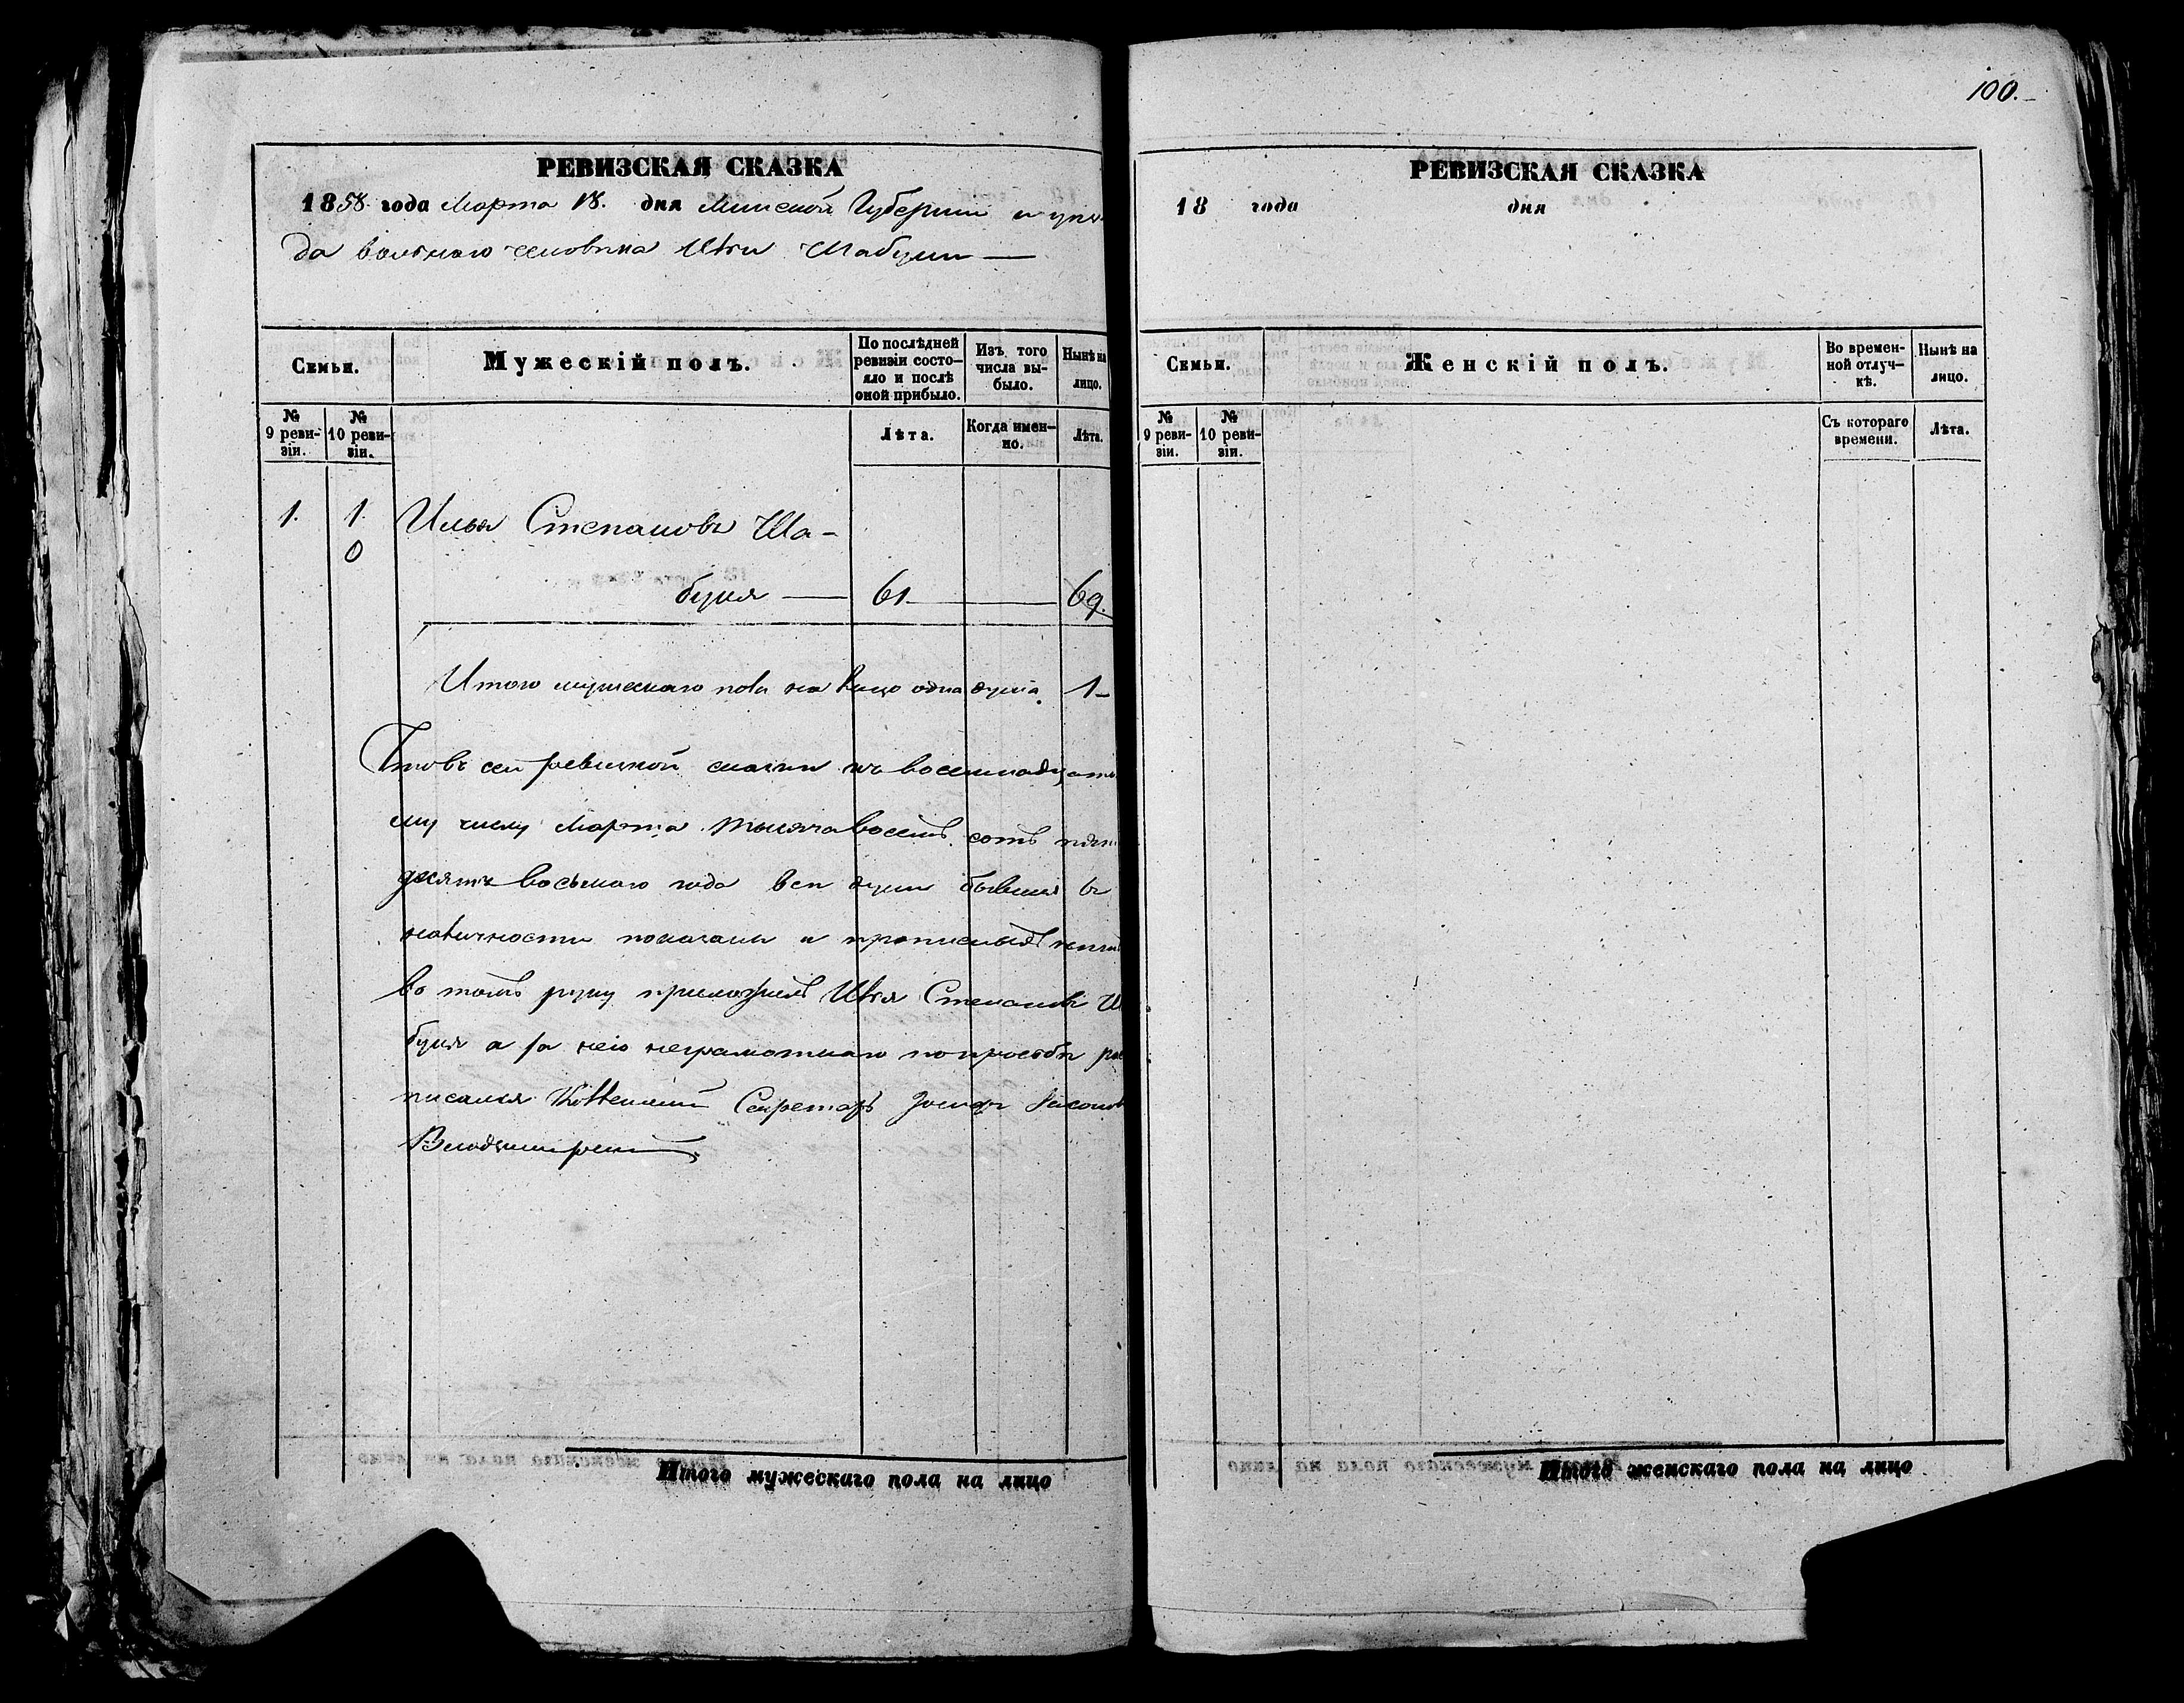 100.
РЕВИЗСКАЯ СКАЗКА
1858 года Марта 18. дня Минской Губерніи и уѣз
да вольнаго человѣка Ильи Шабуни
Семьи.
Мужескій полъ.
По послѣдней ревизіи состо-
яло и послѣ
оной прибыло.
Изъ того
числа вы-
было.
Нынѣ на
лицо.
№
9 реви-
зіи.
№
10 реви-
зіи.
Лѣта.
Когда имен-
но.
Лѣта.
1. 1. Илья Степановъ Ша-
0
буня 61 69.
Итого мужескаго пола на лицо одна душа. 1
Что въ сей ревизской сказки къ восемнадцато
му числу Марта тысяча восемь сотъ пять
десятъ восьмаго года всѣ души бывшія въ
наличности показаны и прописныхъ нѣтъ
въ томъ руку приложилъ Илья Степановъ Ш
буня а за него неграмотнаго по прозьбѣ рос
писался Секретарь
Итого мужескаго пола на лицо
РЕВИЗСКАЯ СКАЗКА
18 года дня
Семьи.
Женскій полъ.
Во времен-
ной отлуч-
кѣ.
Нынѣ на
лицо.
№
9 реви-
зіи.
№
10 реви-
зіи.
Съ котораго
времени.
Лѣта.
Итого женскаго пола на лицо